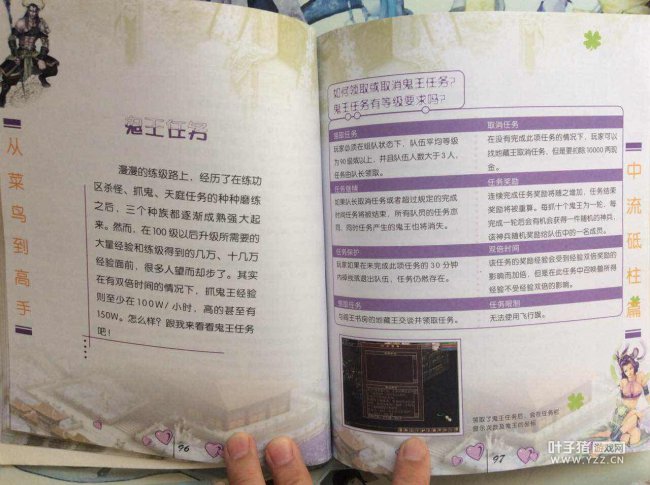 从菜鸟到高手
鬼王任务
漫漫的练级路上，经历了在练功
区杀怪、抓鬼、天庭任务的种种磨练
之后，三个种族都逐渐成熟强大起
来。然而，在100级以后升级所需要的
大量经验和练级得到的几万、十几万
经验面前，很多人望而却步了。其实
在有双倍时间的情况下，抓鬼王经验
则至少在100W/小时，高的甚至有
150W。怎么样？跟我来看看鬼王任务
吧！
96
如何领取或取消鬼王任务？
鬼王任务有等级要求吗？
领取任务
玩家必须在组队状态下，队伍平均等级
为90级或以上，并且队伍人数大于3人，
任务由队长领取。
取消任务
在没有完成此项任务的情况下，玩家可以
找地藏王取消任务，但是要扣除10000两现
金。
如果队长取消任务或者超过规定的完成
时间任务将被结束，所有队员的任务忽
同时任务产生的鬼王也将消失。
任务奖励
连续完成任务奖励将随之增加，任务结束
奖励将被重算。每抓十个鬼王为一轮，每
完成一轮后会有机会获得一件随机的神兵，
该神兵随机奖励给队伍中的一名成员。
任务保护
玩家如果在未完成此项任务的30分钟
内掉线或退出队伍，任务仍然存在。
双倍时间
该任务的奖励经验会受到经验双倍奖励的
影响而加倍，但是在此任务中召唤兽所得
经验不受经验双倍的影响。
领取任务
与阎王书房的地藏王交谈并领取任务。
任务限制
无法使用飞行旗。
领取了鬼王任务后，会在任务栏
显示灵数及鬼王的坐标
97
中流砥柱篇
叶子猪游戏网
www.YZZ.CN